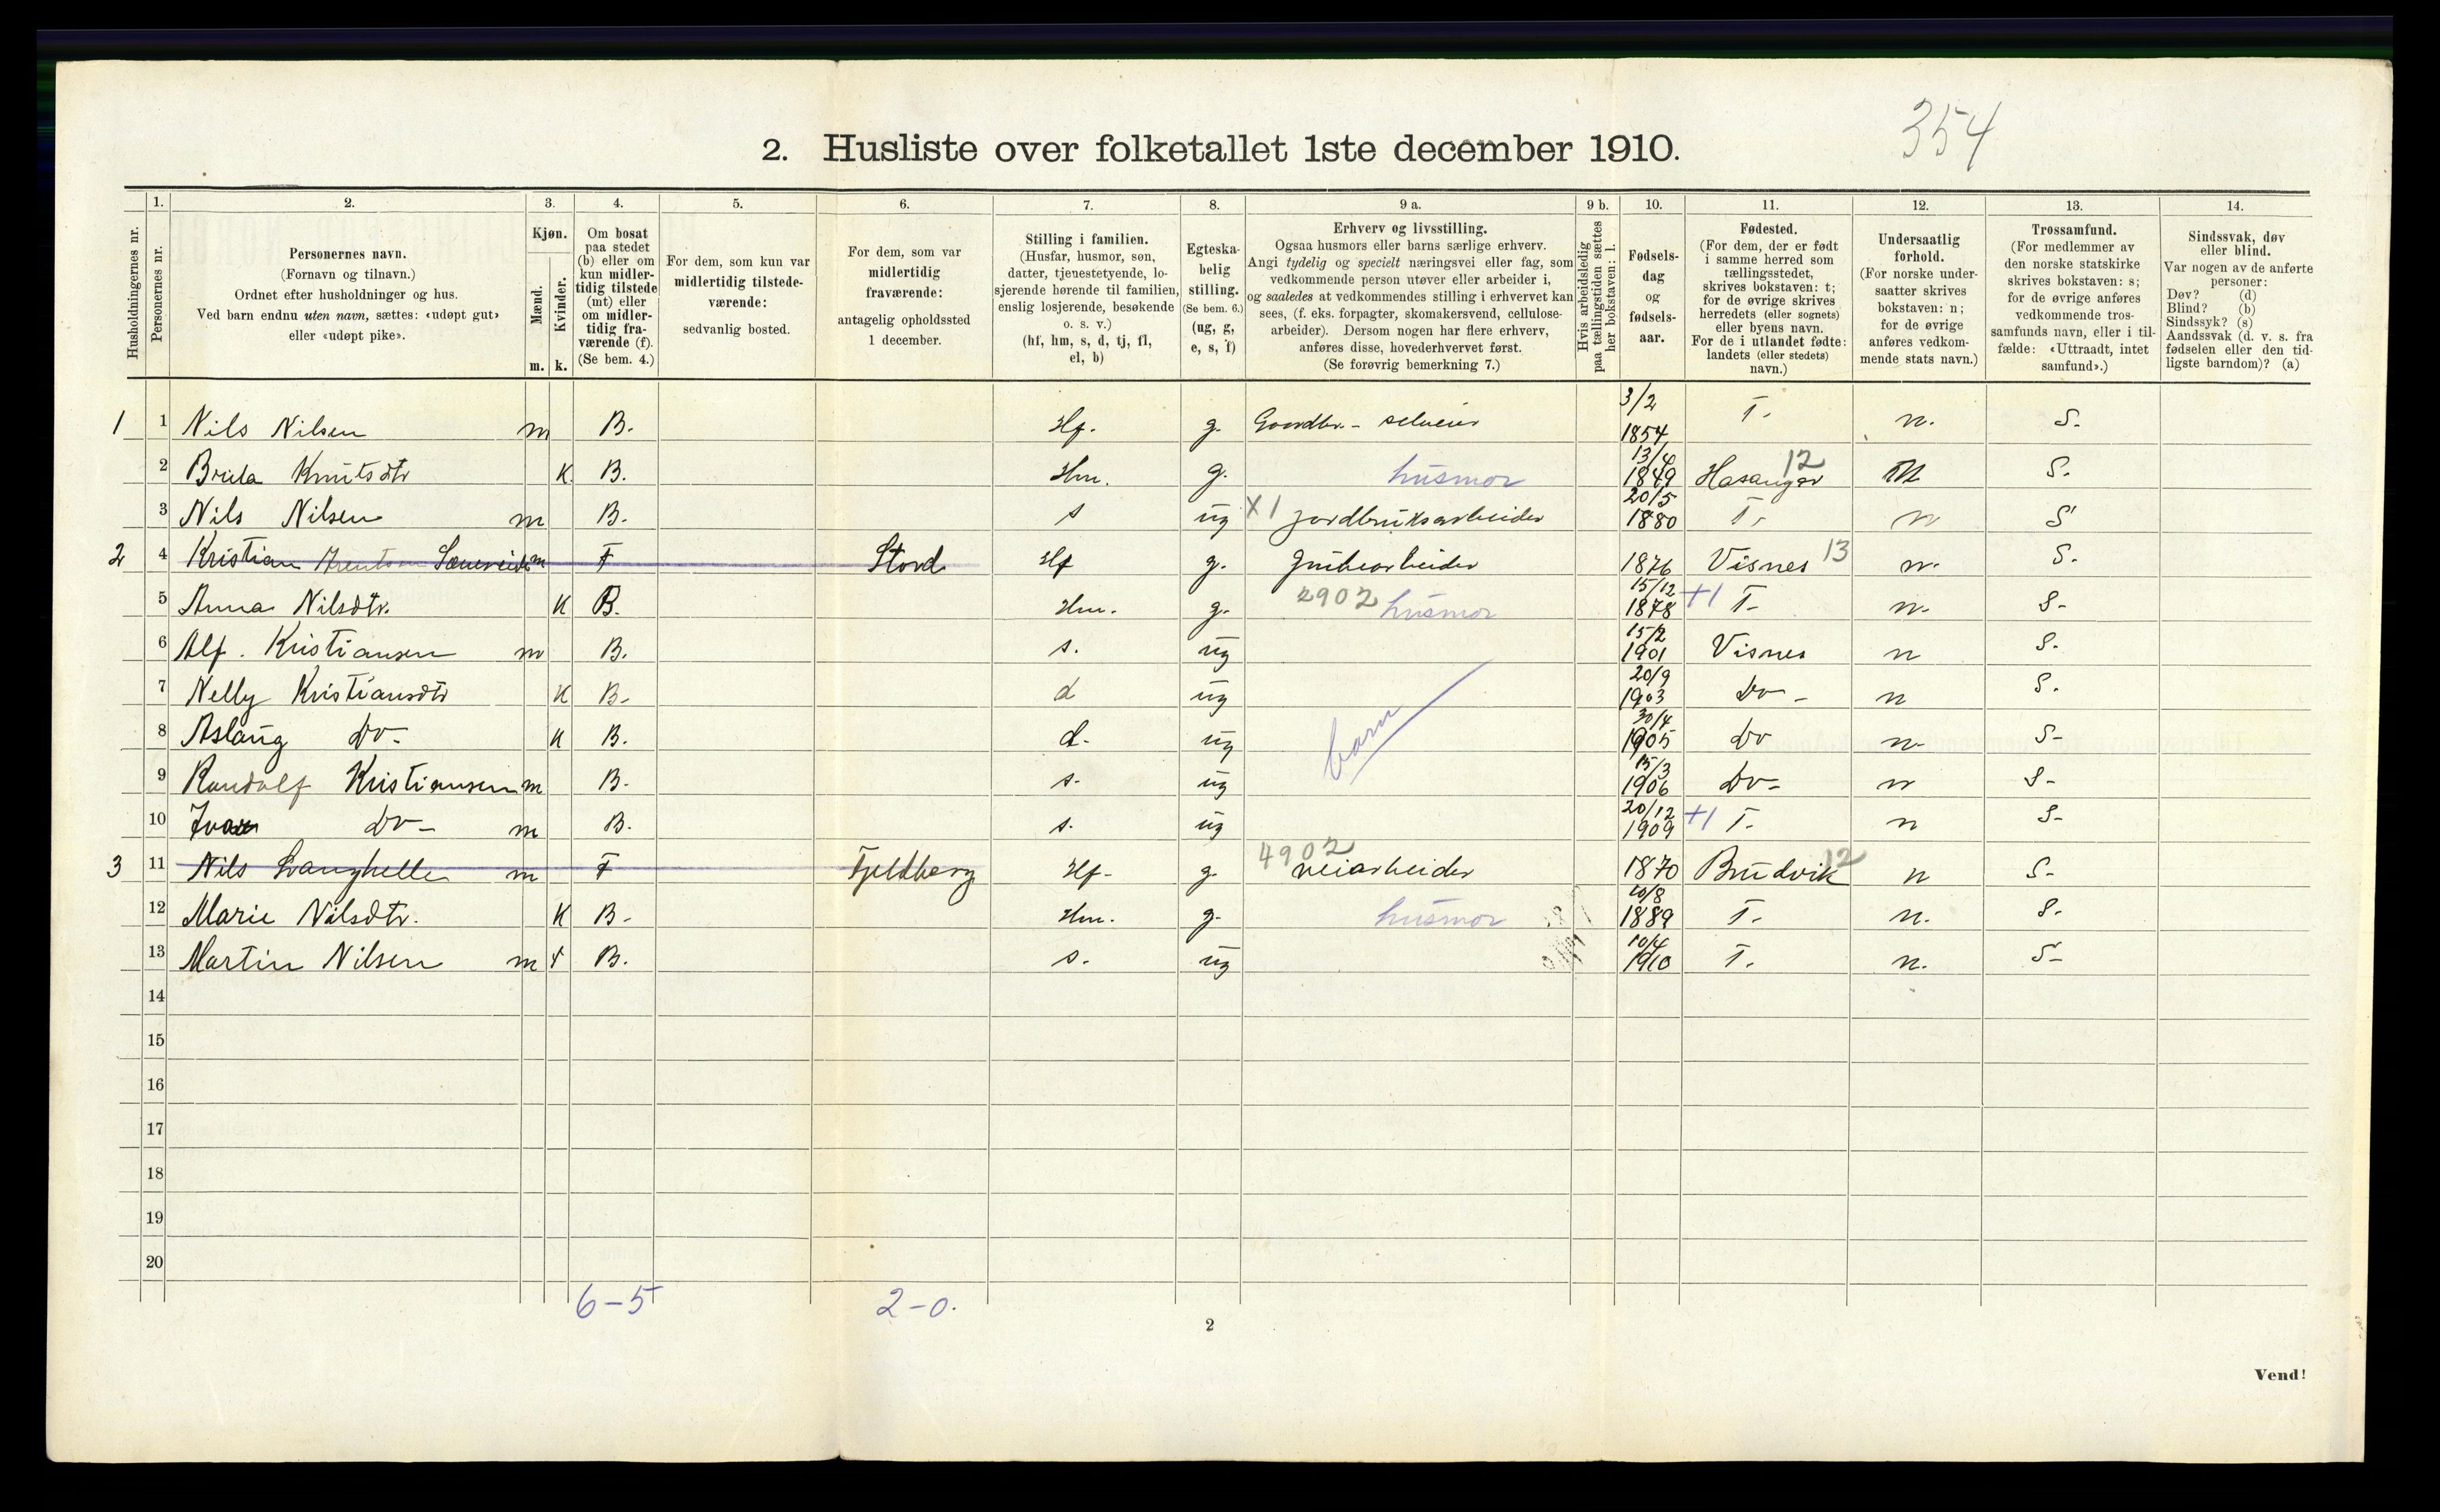 354
2. Husliste over folketallet 1ste december 1910.
Husholdningernes nr.
1. Personernes nr.
2. Personernes navn.
(Fornavn og tilnavn.)
Ordnet efter husholdninger og hus.
Ved barn endnu uten navn, sættes: «udøpt gut»
eller «udøpt pike».
3. Kjøn.
Mænd. m.
Kvinder. k.
4. Om bosat
paa stedet
(b) eller om
kun midler-
tidig tilstede
(mt) eller
om midler-
tidig fra-
værende (f).
(Se bem. 4.)
5. For dem, som kun var
midlertidig tilstede-
værende:
sedvanlig bosted.
6. For dem, som var
midlertidig
fraværende:
antagelig opholdssted
1 december.
7. Stilling i familien.
(Husfar, husmor, søn,
datter, tjenestetyende, lo-
sjerende hørende til familien,
enslig losjerende, besøkende
o. s. v.)
(hf, hm, s, d, tj, fl,
el, b)
8. Egteska-
belig
stilling.
(Se bem. 6.)
(ug, g,
e, s, f)
9 a. Erhverv og livsstilling.
Ogsaa husmors eller barns særlige erhverv.
Angi tydelig og specielt næringsvei eller fag, som
vedkommende person utøver eller arbeider i,
og saaledes at vedkommendes stilling i erhvervet kan
sees, (f. eks. forpagter, skomakersvend, cellulose-
arbeider). Dersom nogen har flere erhverv,
anføres disse, hovederhvervet først.
(Se forøvrig bemerkning 7.)
9 b. Hvis arbeidsledig
paa tællingstiden sættes
her bokstaven: l.
10. Fødsels-
dag
og
fødsels-
aar.
11. Fødested.
(For dem, der er født
i samme herred som
tællingsstedet,
skrives bokstaven: t;
for de øvrige skrives
herredets (eller sognets)
eller byens navn.
For de i utlandet fødte:
landets (eller stedets)
navn.)
12. Undersaatlig
forhold.
(For norske under-
saatter skrives
bokstaven: n;
for de øvrige
anføres vedkom-
mende stats navn.)
13. Trossamfund.
(For medlemmer av
den norske statskirke
skrives bokstaven: s;
for de øvrige anføres
vedkommende tros-
samfunds navn, eller i til-
fælde: «Uttraadt, intet
samfund».)
14. Sindssvak, døv
eller blind.
Var nogen av de anførte
personer:
Døv? (d)
Blind? (b)
Sindssyk? (s)
Aandssvak (d. v. s. fra
fødselen eller den tid-
ligste barndom)? (a)
1 1 Nils Nilsen m B. Hf. g. Gaardbr. - selveier 3/2 1854 T. n. S.
2 Brita Knutsdtr K. B. Hm. g. husmor 13/4 1849 12 n S.
3 Nils Nilsen m B. s ug X 1 jordbruksarbeider 20/5 1880 T. n S
2 4 Kristian m F Stord Hf g. grubearbeider 1876 Visnes 13 n. S.
5 Anna Nilsdtr. K B. Hm. g. 2902 husmor 15/12 1878 +1 T. n. S.
6 Alf. Kristiansen m B. s. ug 15/2 1901 Visnes n S.
7 Nelly Kristiansdtr K B. d ug 20/9 1903 Do - n S.
8 Aslaug Do - K B. d. ug barn 30/4 1905 Do n S.
9 Randolf Kristiansen m B. s. ug 15/3 1906 Do - n S.
10 Do - m B. s. ug 20/12 1909 +1 T. n S.
3 11 Nils Langhelle m F Fjeldberg Hf. g. 4902 veiarbeider 1870 Brudvik 12 n S.
12 Marie Nilsdtr. K B. Hm. g. husmor 1889 T. n. S.
13 Martin Nilsen m B. s. ug 10/4 1910 T. n. S.
14
15
16
17
18
19
20
6-5 2-0.
2
Vend!